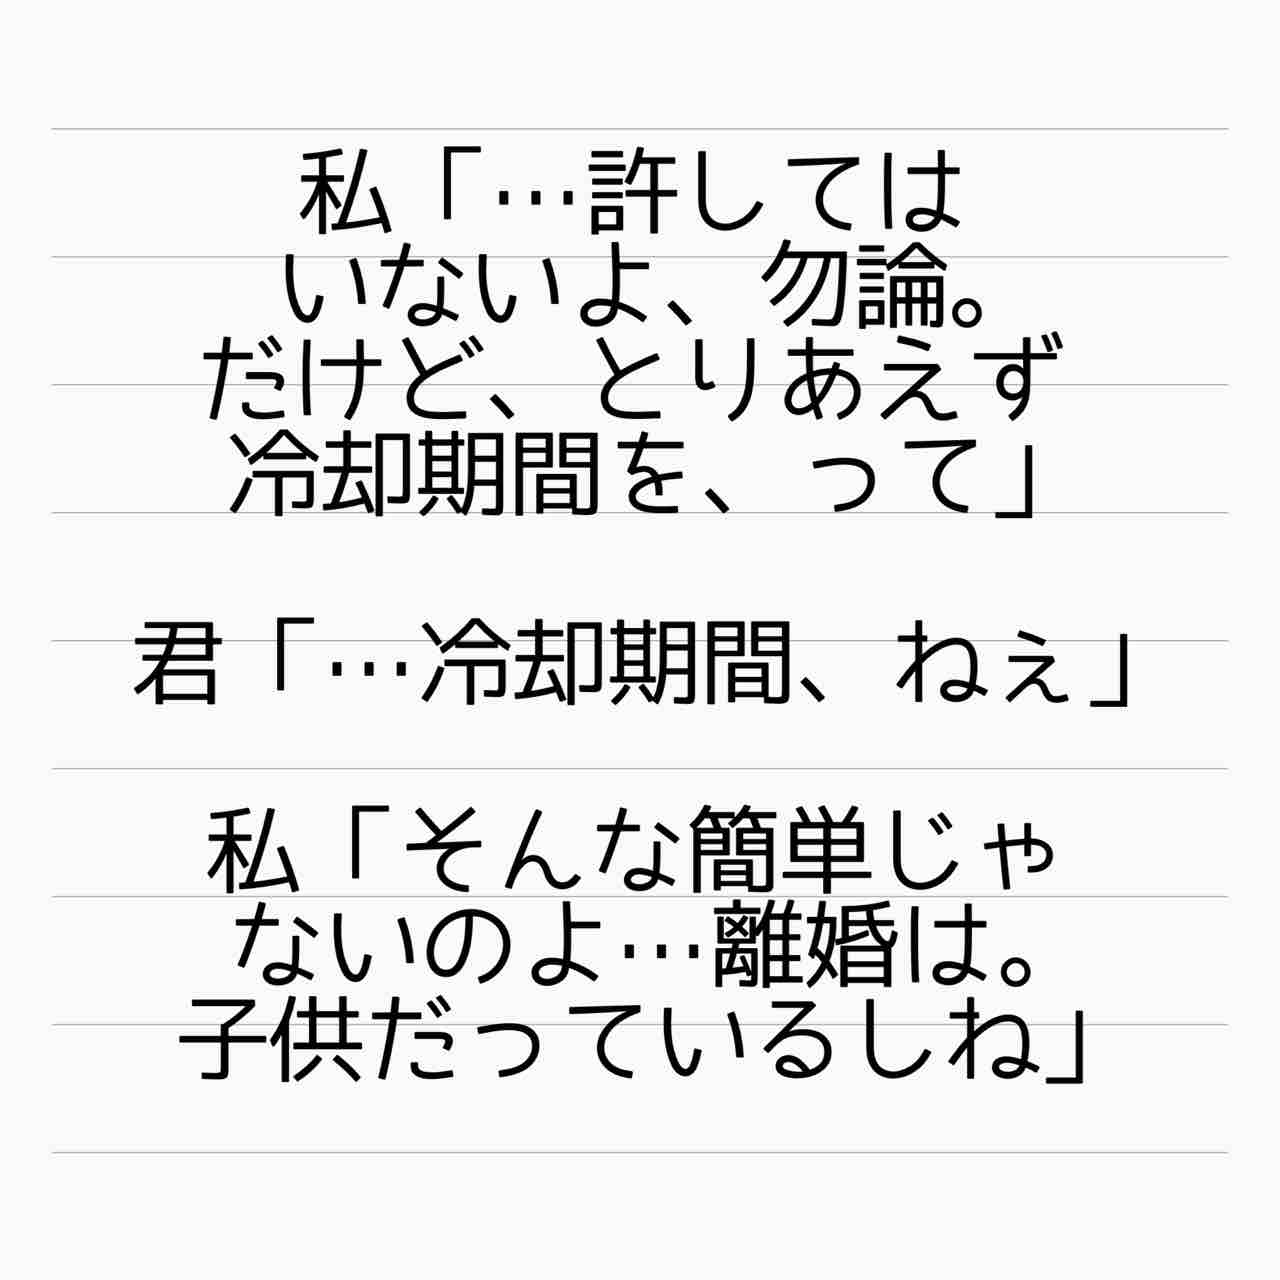 私「…許しては
いないよ、勿論。
だけど、とりあえず
冷却期間を、って」
君「…冷却期間、ねぇ」
私「そんな簡単じゃ
ないのよ…離婚は。
子供だっているしね」